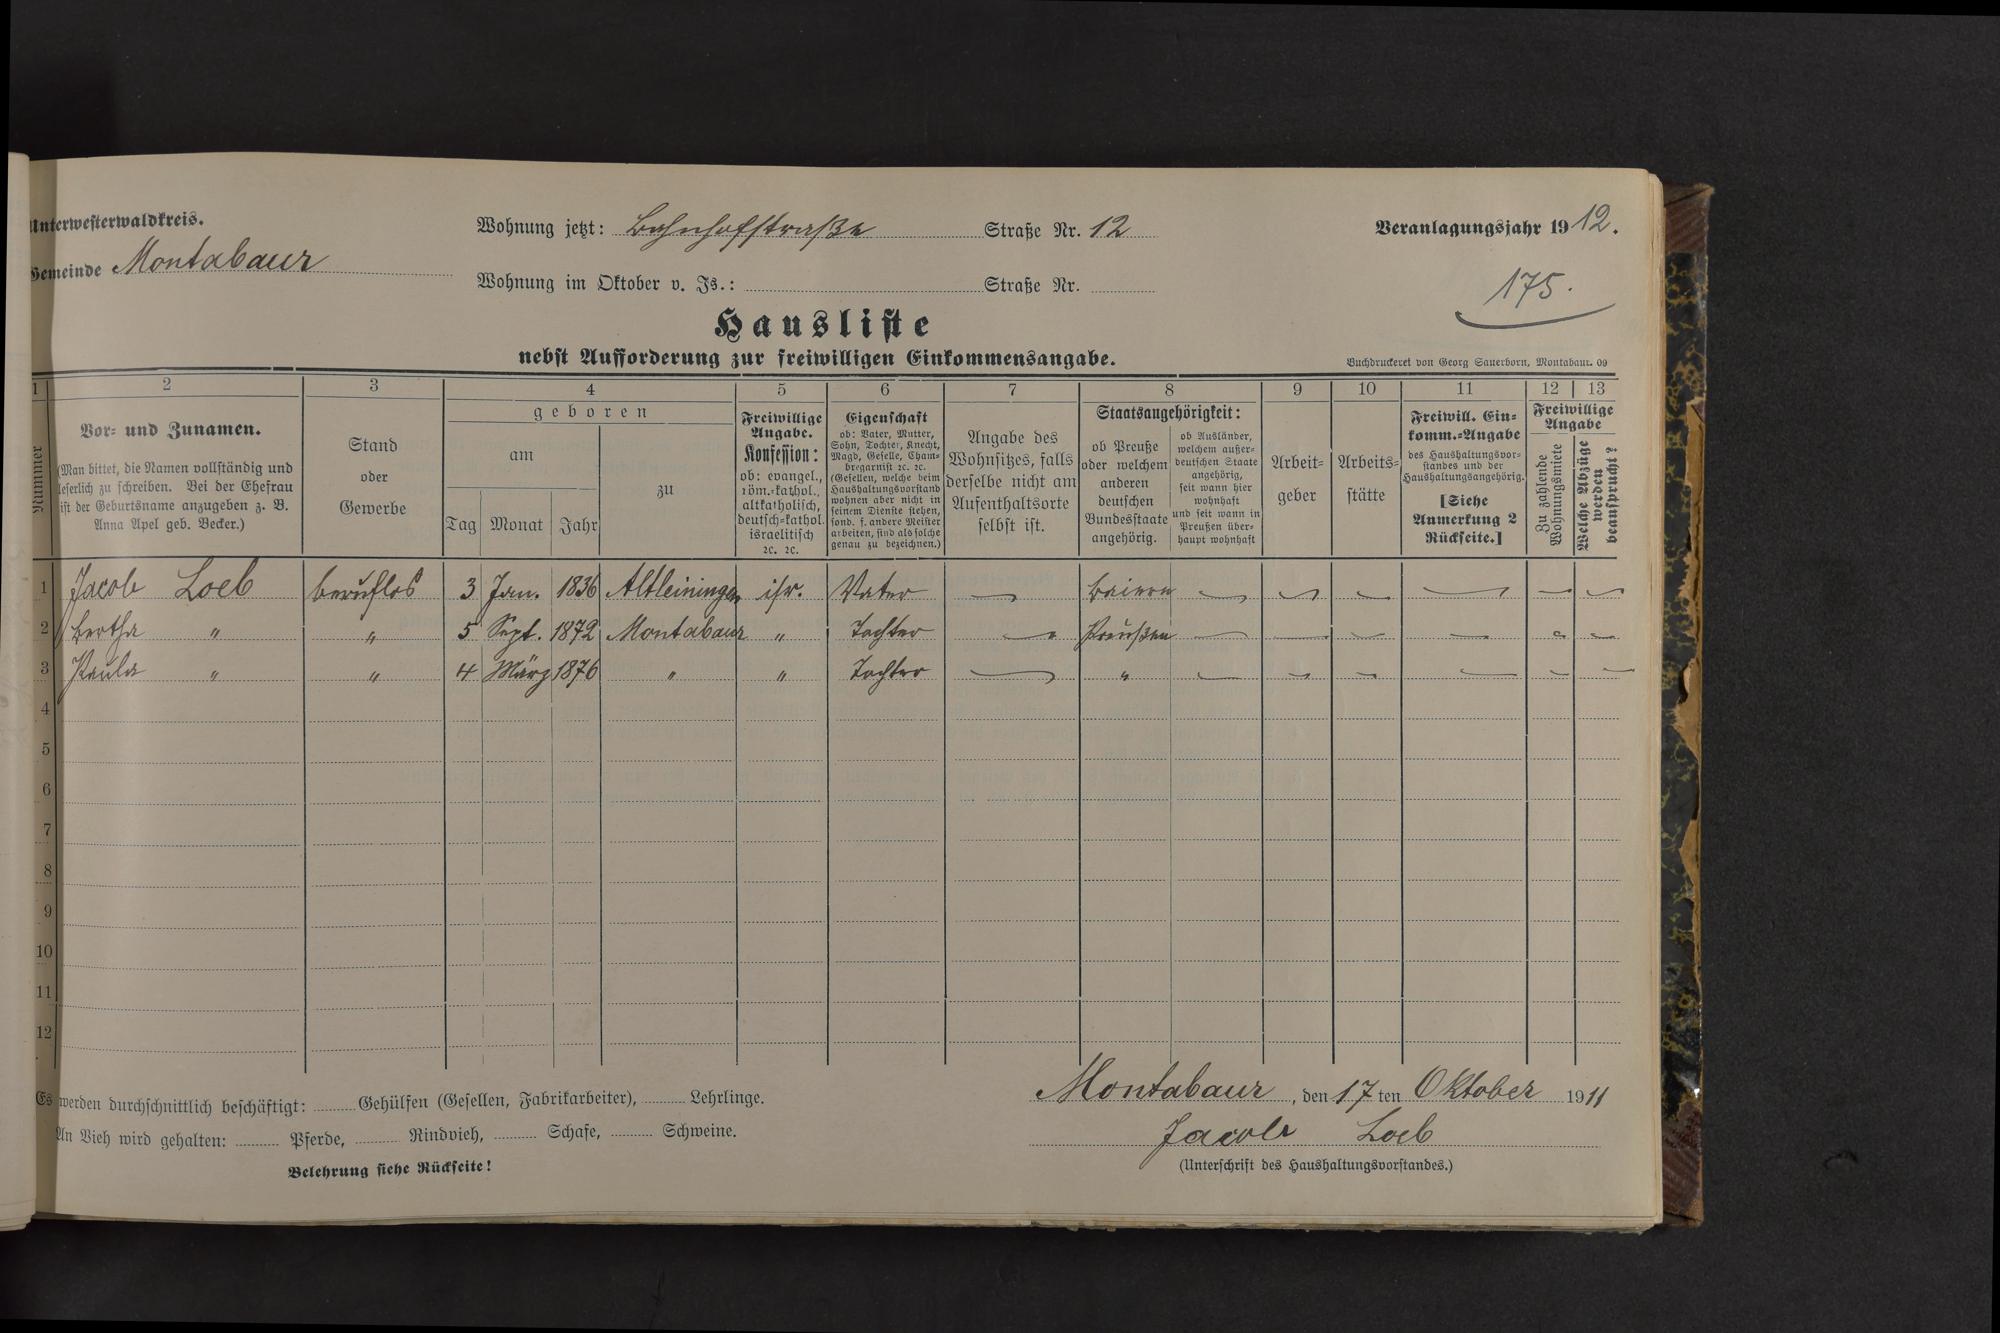 Unterwesterwaldkreis.
Gemeinde Montabaur
Wohnung jetzt: Bahnhofstraße Straße Nr. 12
Wohnung im Oktober v. Js.: Straße Nr.
Veranlagungsjahr 1912.
175.
Hausliste
nebst Aufforderung zur freiwilligen Einkommensangabe.
Buchdruckerei von Georg Sauerborn, Montabaur. 09
1 2 3 4 5 6 7 8 9 10 11 12 13
Nummer
Vor- und Zunamen.
(Man bittet, die Namen vollständig und
leserlich zu schreiben. Bei der Ehefrau
ist der Geburtsname anzugeben z. B.
Anna Apel geb. Becker.)
Stand
oder
Gewerbe
geboren
am
Tag Monat Jahr
zu
Freiwillige
Angabe.
Konfession:
ob: evangel.,
röm.-kathol.,
altkatholisch,
deutsch-kathol.
israelitisch
ꝛc. ꝛc.
Eigenschaft
ob: Vater, Mutter,
Sohn, Tochter, Knecht,
Magd, Geselle, Cham-
bregarnist ꝛc. ꝛc.
(Gesellen, welche beim
Haushaltungsvorstand
wohnen aber nicht in
seinem Dienste stehen,
sond. f. andere Meister
arbeiten, sind als solche
genau zu bezeichnen.)
Angabe des
Wohnsitzes, falls
derselbe nicht am
Aufenthaltsorte
selbst ist.
Staatsangehörigkeit:
ob Preuße
oder welchem
anderen
deutschen
Bundesstaate
angehörig.
ob Ausländer,
welchem außer-
deutschen Staate
angehörig,
seit wann hier
wohnhaft
und seit wann in
Preußen über-
haupt wohnhaft
Arbeit-
geber
Arbeits-
stätte
Freiwill. Ein-
komm.-Angabe
des Haushaltungsvor-
standes und der
Haushaltungsangehörig.
[Siehe
Anmerkung 2
Rückseite.]
Freiwillige
Angabe
Zu zahlende
Wohnungsmiete
Welche Abzüge
werden
beansprucht?
1 Jacob Loeb beruflos 3 Jan. 1836 Altleiningen isr. Vater — Baiern — — — — — —
2 Bertha " " 5 Sept. 1872 Montabaur " Tochter — Preußen — — — — — —
3 Paula " " 4 März 1876 " " Tochter — " — — — — — —
4
5
6
7
8
9
10
11
12
Es werden durchschnittlich beschäftigt: Gehülfen (Gesellen, Fabrikarbeiter), Lehrlinge.
An Vieh wird gehalten: Pferde, Rindvieh, Schafe, Schweine.
Belehrung siehe Rückseite!
Montabaur, den 17 ten Oktober 1911
Jacob Loeb
(Unterschrift des Haushaltungsvorstandes.)